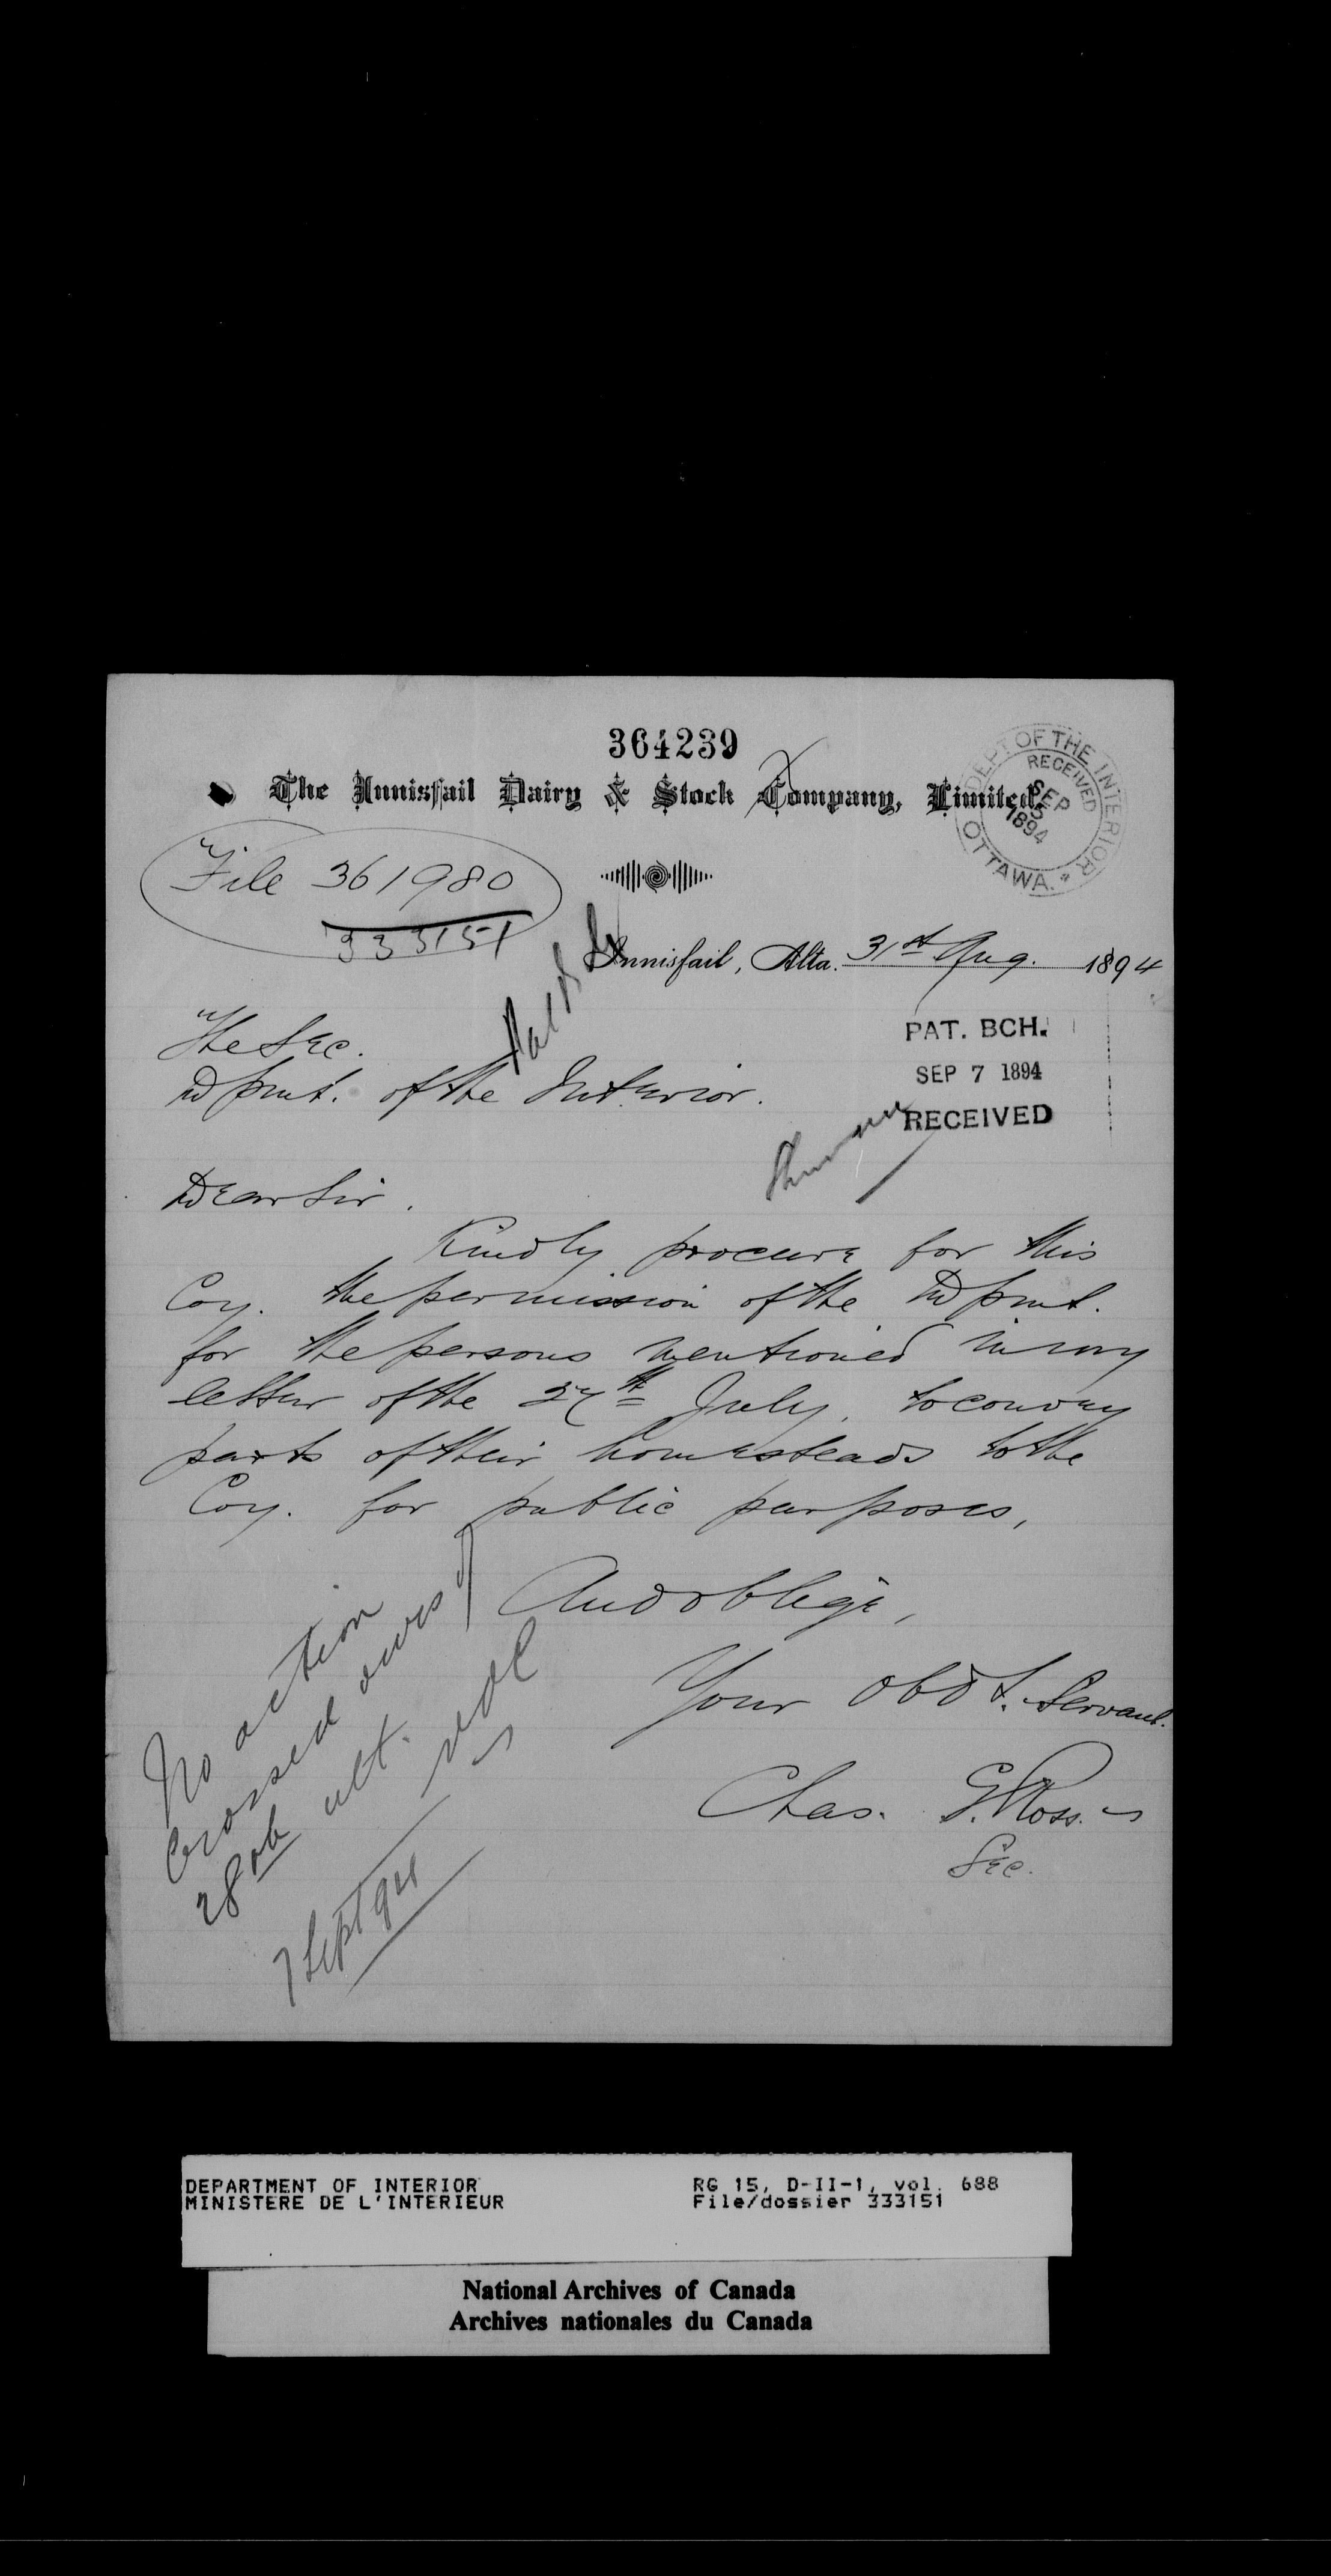 364239
The Innisfail Dairy & Stock Company, Limited.
DEPT OF THE INTERIOR
RECEIVED
SEP
5
1894
OTTAWA.
File 361980
333151
Innisfail, Alta. 31st Aug. 1894
The Sec.
Dpmt. of the Interior.
PAT. BCH.
SEP 7 1894
RECEIVED
Dear Sir.
Kindly procure for this
Coy. the permission of the Dpmt.
for the persons mentioned in my
letter of the 27th July, to convey
parts of their homesteads to the
Coy. for public purposes,
And oblige,
Your Obdt. Servant.
Chas. G. Ross.
Sec.
No action
Crossed ours of
28th ult.
7 Sept 94
DEPARTMENT OF INTERIOR
MINISTERE DE L'INTERIEUR
RG 15, D-II-1, vol. 688
File/dossier 333151
National Archives of Canada
Archives nationales du Canada